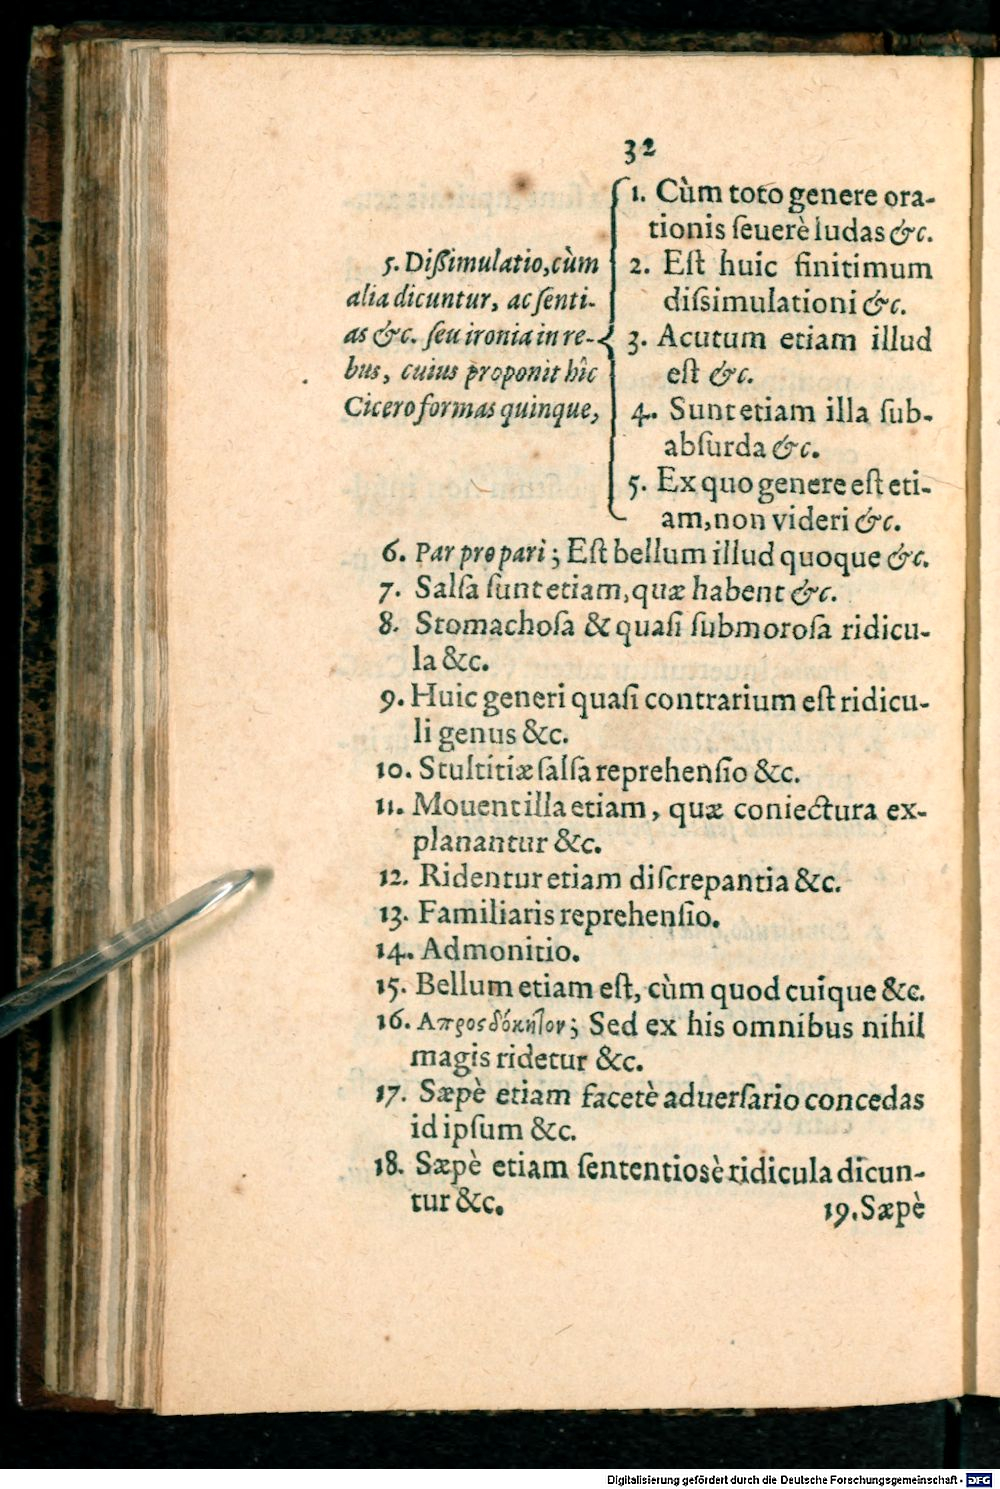 32
5. Dißimulatio, cùm
alia dicuntur, ac senti-
as &c. seu ironia in re-
bus, cuius proponit hîc
Cicero formas quinque,
1. Cùm toto genere ora-
tionis seuerè ludas &c.
2. Est huic finitimum
dissimulationi &c.
3. Acutum etiam illud
est &c.
4. Sunt etiam illa sub-
absurda &c.
5. Ex quo genere est eti-
am, non videri &c.
6. Par pro pari; Est bellum illud quoque &c.
7. Salsa sunt etiam, quæ habent &c.
8. Stomachosa & quasi submorosa ridicu-
la &c.
9. Huic generi quasi contrarium est ridicu-
li genus &c.
10. Stultitiæ salsa reprehensio &c.
11. Mouent illa etiam, quæ coniectura ex-
planantur &c.
12. Ridentur etiam discrepantia &c.
13. Familiaris reprehensio.
14. Admonitio.
15. Bellum etiam est, cùm quod cuique &c.
16. Απροσδόκητον; Sed ex his omnibus nihil
magis ridetur &c.
17. Sæpè etiam facetè aduersario concedas
id ipsum &c.
18. Sæpè etiam sententiosè ridicula dicun-
tur &c.
19. Sæpè
Digitalisierung gefördert durch die Deutsche Forschungsgemeinschaft - DFG